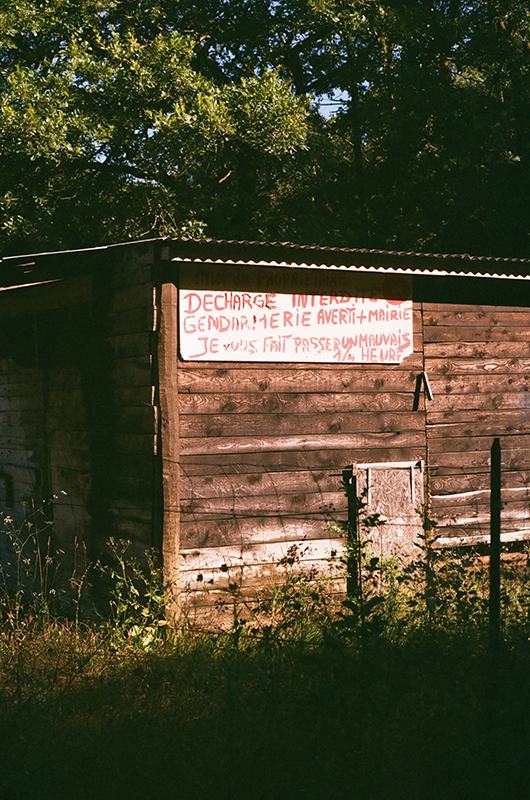 DECHARGE INTERDITE
GENDARMERIE AVERTI+MAIRIE
JE VOUS FAIT PASSER UN MAUVAIS
1/4 HEURE